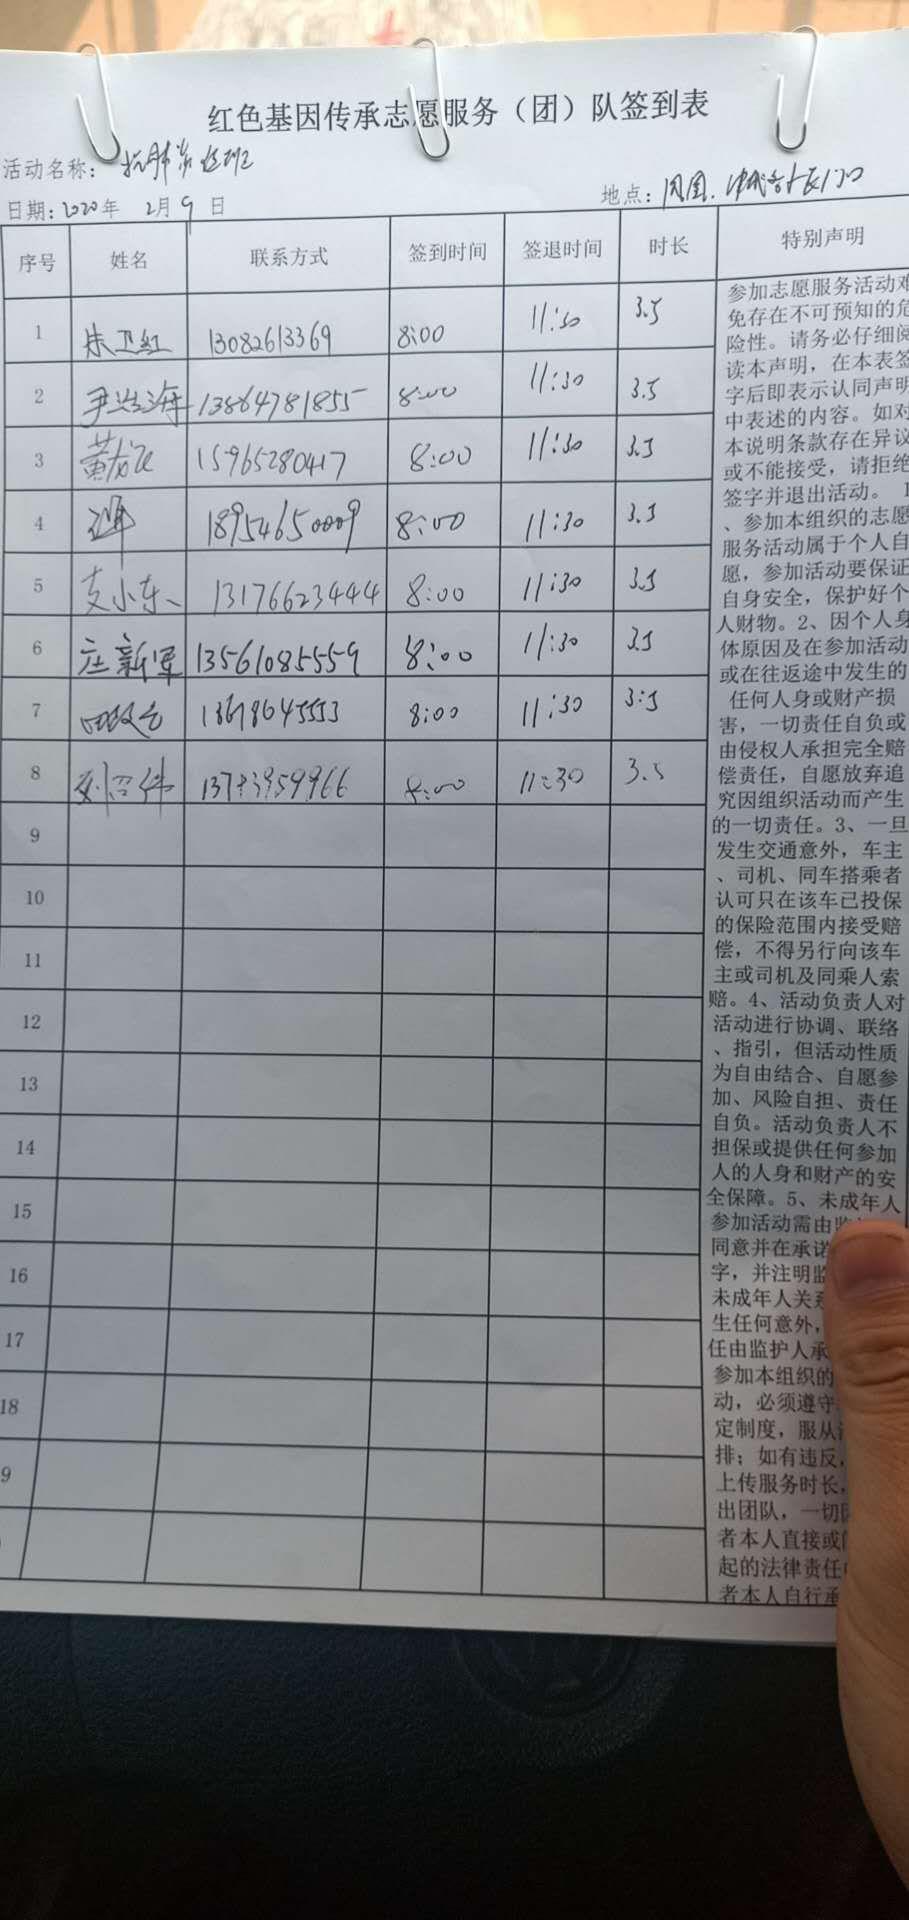 红色基因传承志愿服务（团）队签到表
活动名称：抗肺炎
日期：2020年 2月9日
地点：凤凰
序号 姓名 联系方式 签到时间 签退时间 时长 特别声明
1 朱卫红 13082613369 8:00 11:30 3.5
2 13864781855 8:00 11:30 3.5
3 15965280417 8:00 11:30 3.5
4 18954650009 8:00 11:30 3.5
5 支小东 13176623444 8:00 11:30 3.5
6 庄新军 13561085559 8:00 11:30 3.5
7 8:00 11:30 3:5
8 8:00 11:30 3.5
9
10
11
12
13
14
15
16
17
18
9
参加志愿服务活动难
免存在不可预知的危
险性。请务必仔细阅
读本声明，在本表签
字后即表示认同声明
中表述的内容。如对
本说明条款存在异议
或不能接受，请拒绝
签字并退出活动。1
、参加本组织的志愿
服务活动属于个人自
愿，参加活动要保证
自身安全，保护好个
人财物。2、因个人身
体原因及在参加活动
或在往返途中发生的
任何人身或财产损
害，一切责任自负或
由侵权人承担完全赔
偿责任，自愿放弃追
究因组织活动而产生
的一切责任。3、一旦
发生交通意外，车主
、司机、同车搭乘者
认可只在该车已投保
的保险范围内接受赔
偿，不得另行向该车
主或司机及同乘人索
赔。4、活动负责人对
活动进行协调、联络
、指引，但活动性质
为自由结合、自愿参
加、风险自担、责任
自负。活动负责人不
担保或提供任何参加
人的人身和财产的安
全保障。5、未成年人
参加活动需由监
同意并在承诺
字，并注明监
未成年人关系
生任何意外，
任由监护人承
参加本组织的
动，必须遵守
定制度，服从
排；如有违反，
上传服务时长，
出团队，一切
者本人直接或
起的法律责任
者本人自行承